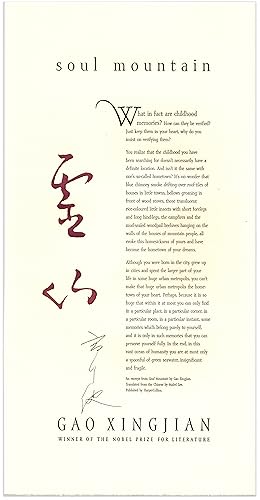 soul mountain
What in fact are childhood
memories? How can they be verified?
Just keep them in your heart, why do you
insist on verifying them?
You realize that the childhood you have
been searching for doesn't necessarily have a
definite location. And isn't it the same with
one's so-called hometown? It's no wonder that
blue chimney smoke drifting over roof-tiles of
houses in little towns, bellows groaning in
front of wood stoves, those translucent
rice-coloured little insects with short forelegs
and long hind-legs, the campfires and the
mud-sealed wood-pail beehives hanging on the
walls of the houses of mountain people, all
evoke this homesickness of yours and have
become the hometown of your dreams.
Although you were born in the city, grew up
in cities and spent the larger part of your
life in some huge urban metropolis, you can't
make that huge urban metropolis the home-
town of your heart. Perhaps, because it is so
huge that within it at most you can only find
in a particular place, in a particular corner, in
a particular room, in a particular instant, some
memories which belong purely to yourself,
and it is only in such memories that you can
preserve yourself fully. In the end, in this
vast ocean of humanity you are at most only
a spoonful of green seawater, insignificant
and fragile.
An excerpt from Soul Mountain by Gao Xingjian.
Translated from the Chinese by Mabel Lee.
Published by HarperCollins.
靈山
GAO XINGJIAN
WINNER OF THE NOBEL PRIZE FOR LITERATURE